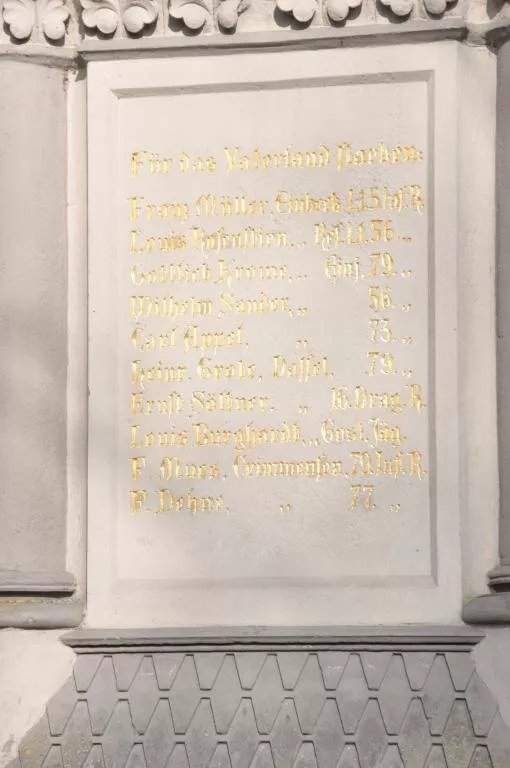 Für das Vaterland starben:
Franz Müller, Einbeck, Lt. 15. Inf. R.
Louis Rosenstien, „ Ref. Lt. 56. „
Gottlieb Krome, „ Einj. 79. „
Wilhelm Sander, „ 56. „
Carl Appel, „ 73. „
Heinr. Grote, Dassel, 79. „
Ernst Söllner, „ 16. Drag. R.
Louis Burghardt, „ Gust. Jäg.
F. Mues, Crimmensen, 79. Inf. R.
F. Dehne, „ 77. „